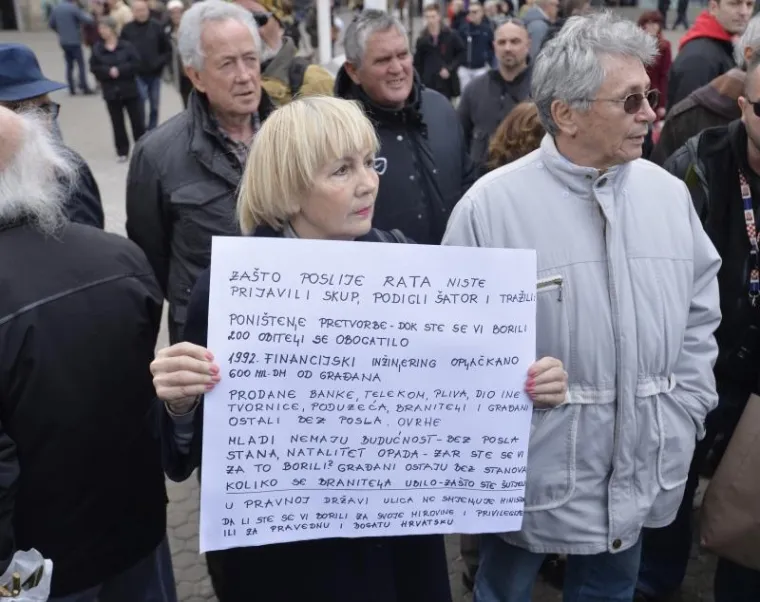 ZAŠTO POSLIJE RATA NISTE
PRIJAVILI SKUP, PODIGLI ŠATOR I TRAŽILI:
PONIŠTENJE PRETVORBE - DOK STE SE VI BORILI
200 OBITELJI SE OBOGATILO
1992. FINANCIJSKI INŽINJERING OPLJAČKANO
600 MIL. DM OD GRAĐANA
PRODANE BANKE, TELEKOM, PLIVA, DIO INE
TVORNICE, PODUZEĆA, BRANITELJI I GRAĐANI
OSTALI BEZ POSLA. OVRHE
MLADI NEMAJU BUDUĆNOST - BEZ POSLA
STANA, NATALITET OPADA - ZAR STE SE VI
ZA TO BORILI? GRAĐANI OSTAJU BEZ STANOVA
KOLIKO SE BRANITELJA UBILO - ZAŠTO STE ŠUTJELI
U PRAVNOJ DRŽAVI ULICA NE SMJENJUJE MINISTRA
DA LI STE SE VI BORILI ZA SVOJE MIROVINE I PRIVILEGIJE
ILI ZA PRAVEDNU I BOGATU HRVATSKU